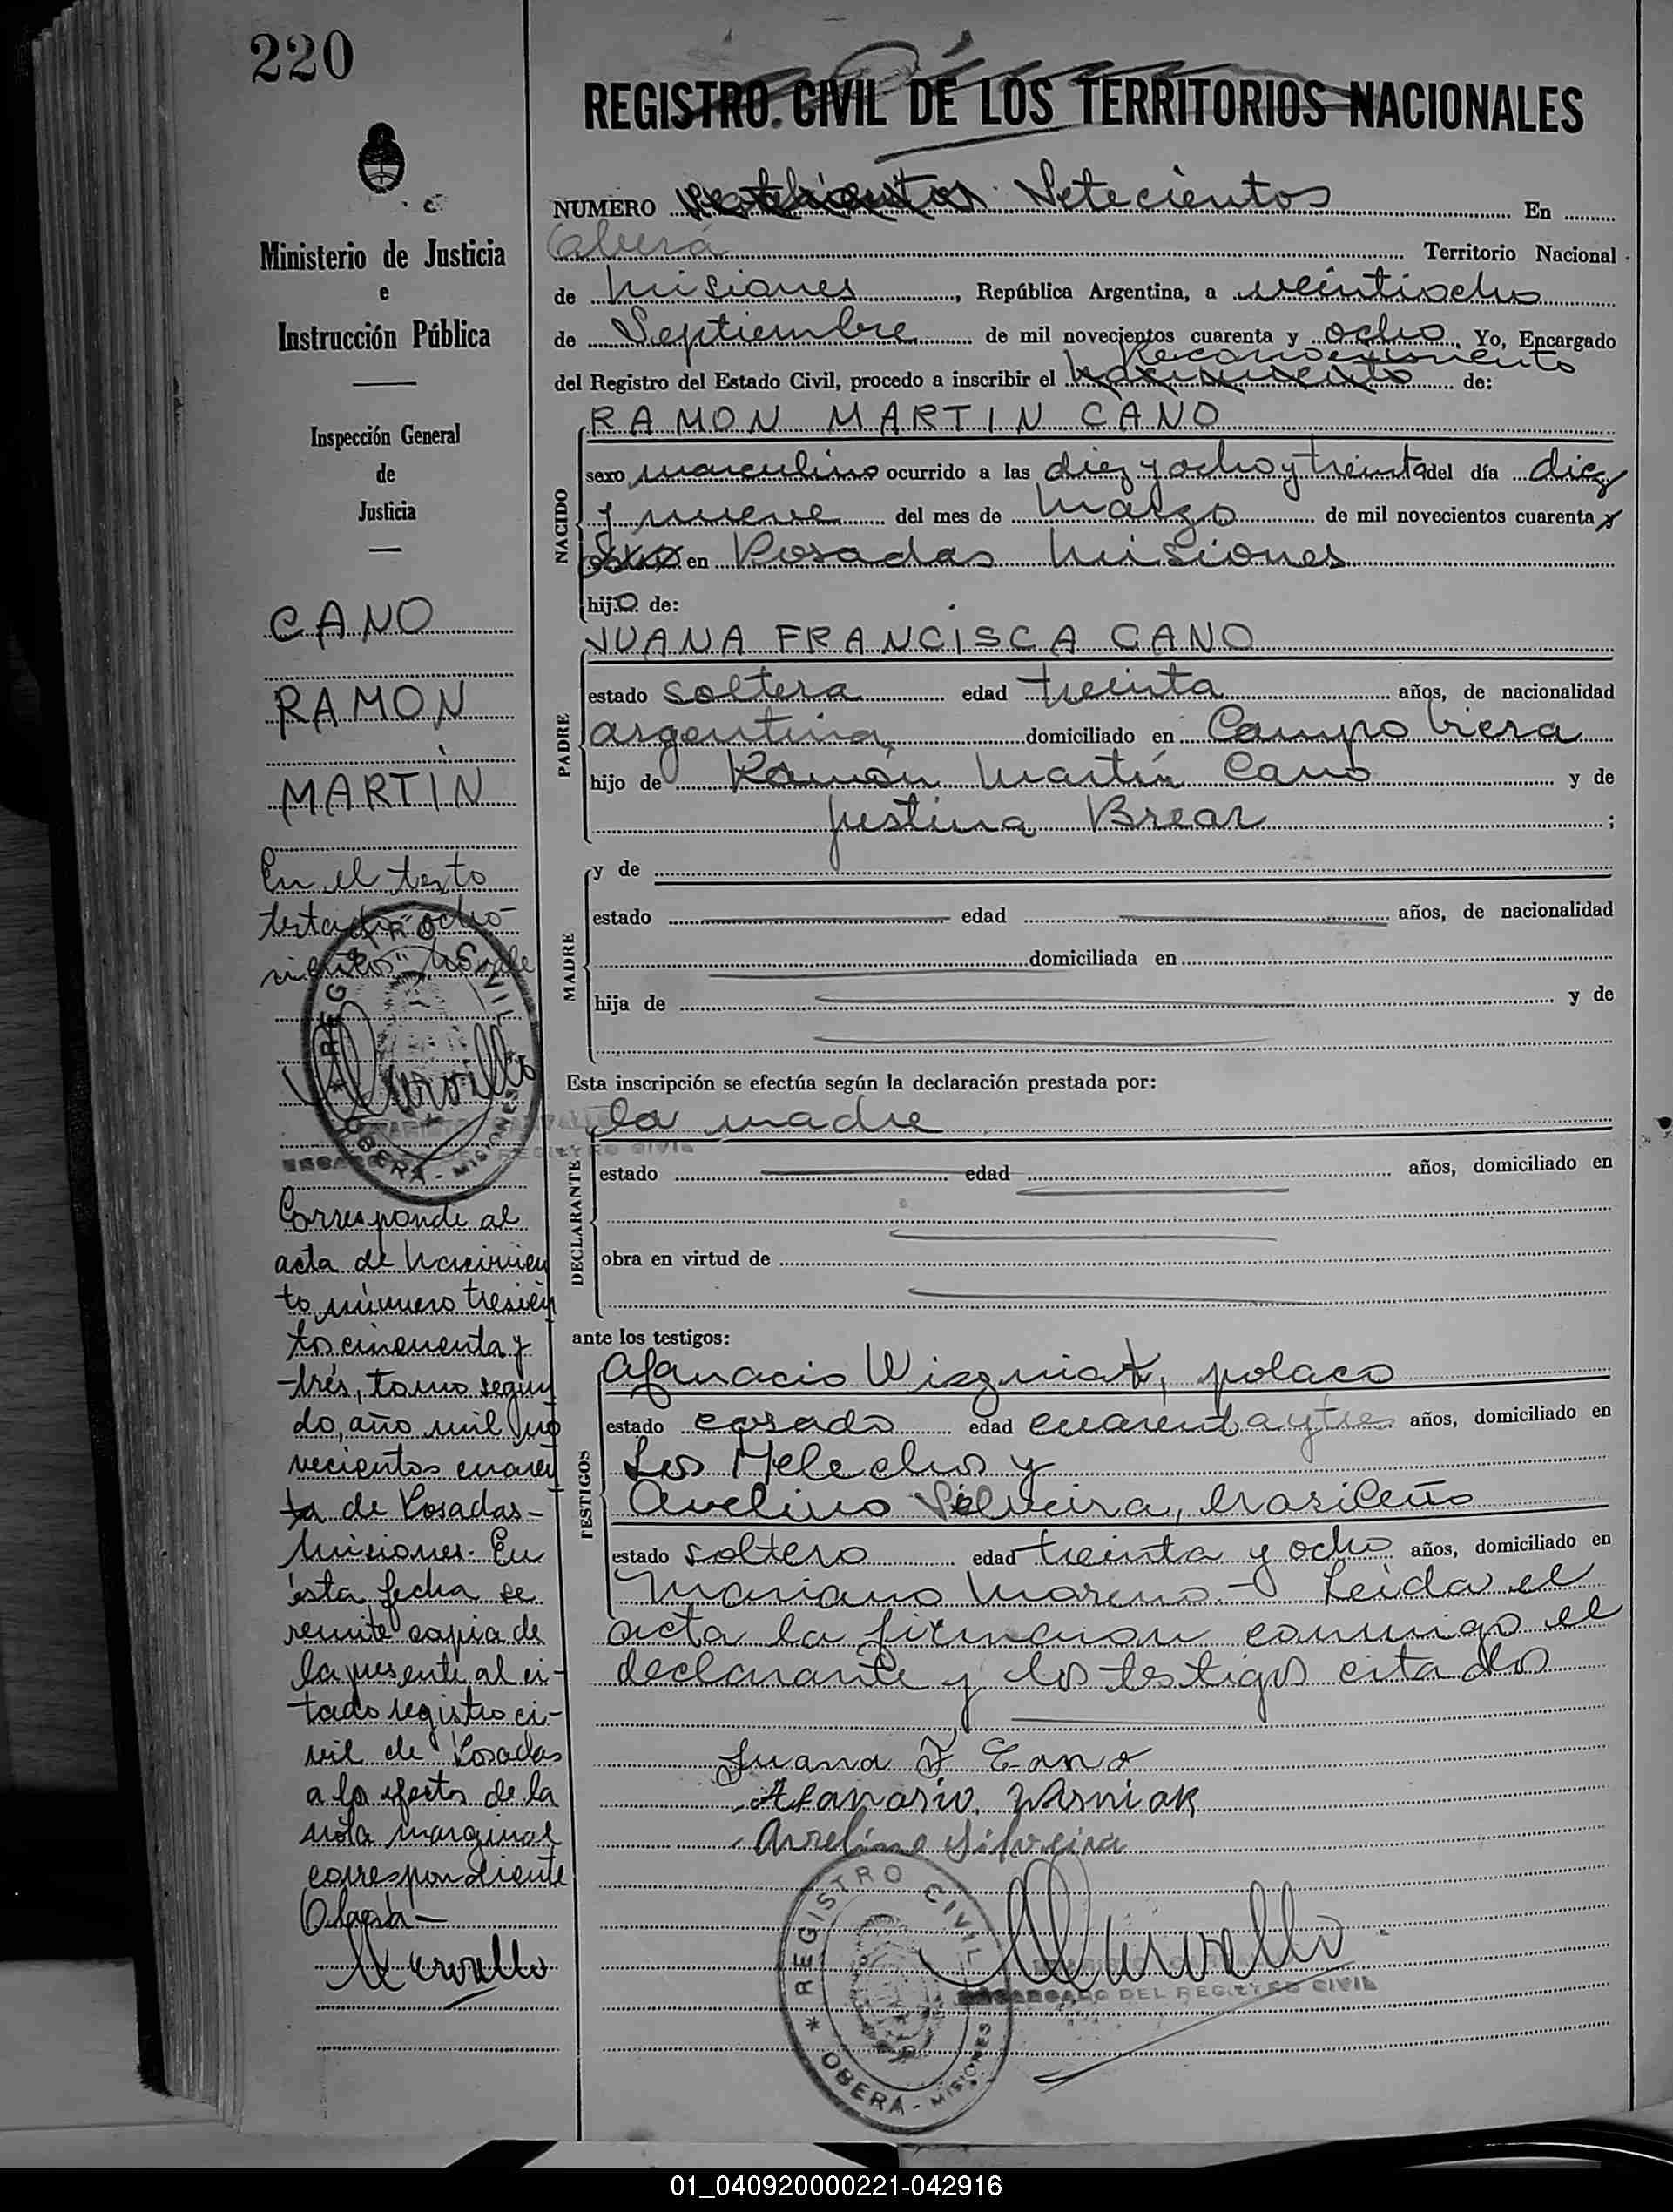 220
REGISTRO CIVIL DE LOS TERRITORIOS NACIONALES
Ministerio de Justicia
e
Instrucción Pública
Inspección General
de
Justicia
CANO
RAMON
MARTIN
En el texto
testado "ocho-
cientos" no vale
REGISTRO CIVIL
OBERA - MISIONES
Corresponde al
acta de Nacimien
to número tresien
tos cincuenta y
trés, tomo segun
do, año mil no
vecientos cuaren
ta de Posadas-
Misiones. En
ésta fecha se
remite copia de
la presente al ci-
tado registro ci-
vil de Posadas
a los efectos de la
nota marginal
correspondiente
NUMERO Setecientos En
Oberá Territorio Nacional
de Misiones, República Argentina, a veintiocho
de Septiembre de mil novecientos cuarenta y ocho, Yo, Encargado
Reconocimiento
del Registro del Estado Civil, procedo a inscribir el Nacimiento de:
NACIDO
RAMON MARTIN CANO
sexo masculino ocurrido a las diez y ocho y treinta del día diez
y nueve del mes de Marzo de mil novecientos cuarenta y
en Posadas Misiones
hijo de:
PADRE
JUANA FRANCISCA CANO
estado soltera edad treinta años, de nacionalidad
argentina domiciliado en Campo Viera
hijo de Ramón Martín Cano y de
Justina Brear ;
MADRE
y de
estado edad años, de nacionalidad
domiciliada en
hija de y de
Esta inscripción se efectúa según la declaración prestada por:
DECLARANTE
la madre
estado edad años, domiciliado en
obra en virtud de
ante los testigos:
TESTIGOS
Afanacio Wisgniak, polaco
estado casado edad cuarenta y tres años, domiciliado en
Los Helechos y
Avelino Silveira, brasileño
estado soltero edad treinta y ocho años, domiciliado en
Mariano Moreno.- Leida el
acta la firmaron conmigo el
declarante y los testigos citados
Juana F Cano
Afanasio Wisniak
Avelino Silveira
REGISTRO CIVIL
OBERA - MISIONES
ENCARGADO DEL REGISTRO CIVIL
01_040920000221-042916